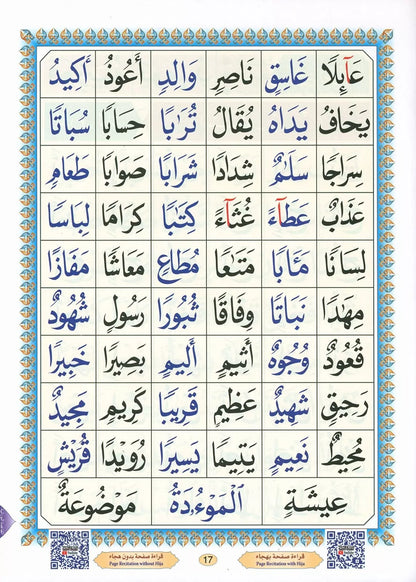 عَآئِلًا غَاسِقٍ نَاصِرٍ وَالِدٍ أَعُوذُ أَكِيدُ
يَخَافُ يَدَاهُ يُقَالُ تُرَٰبًا حِسَابًا سُبَاتًا
سِرَاجًا سَلَٰمٌ شِدَادًا شَرَابًا صَوَابًا طَعَامٍ
عَذَابٌ عَطَآءً غُثَآءً كِتَٰبًا كِرَامًا لِبَاسًا
لِسَانًا مَـَٔابًا مَتَٰعًا مُطَاعٍ مَعَاشًا مَفَازًا
مِهَٰدًا نَبَاتًا وِفَاقًا ثُبُورًا رَسُولٍ شُهُودٌ
قُعُودٌ وُجُوهٌ أَثِيمٍ أَلِيمٍ بَصِيرًا خَبِيرًا
رَحِيقٍ شَهِيدٌ عَظِيمٍ قَرِيبًا كَرِيمٍ مَجِيدٌ
مُحِيطٌ نَعِيمٍ يَتِيمًا يَسِيرًا رُوَيْدًا قُرَيْشٍ
عِيشَةٍ الْمَوْءُدَةُ مَوْضُوعَةٌ
قراءة صفحة بهجاء 17 قراءة صفحة بدون هجاء
Page Recitation with Hija Page Recitation without Hija